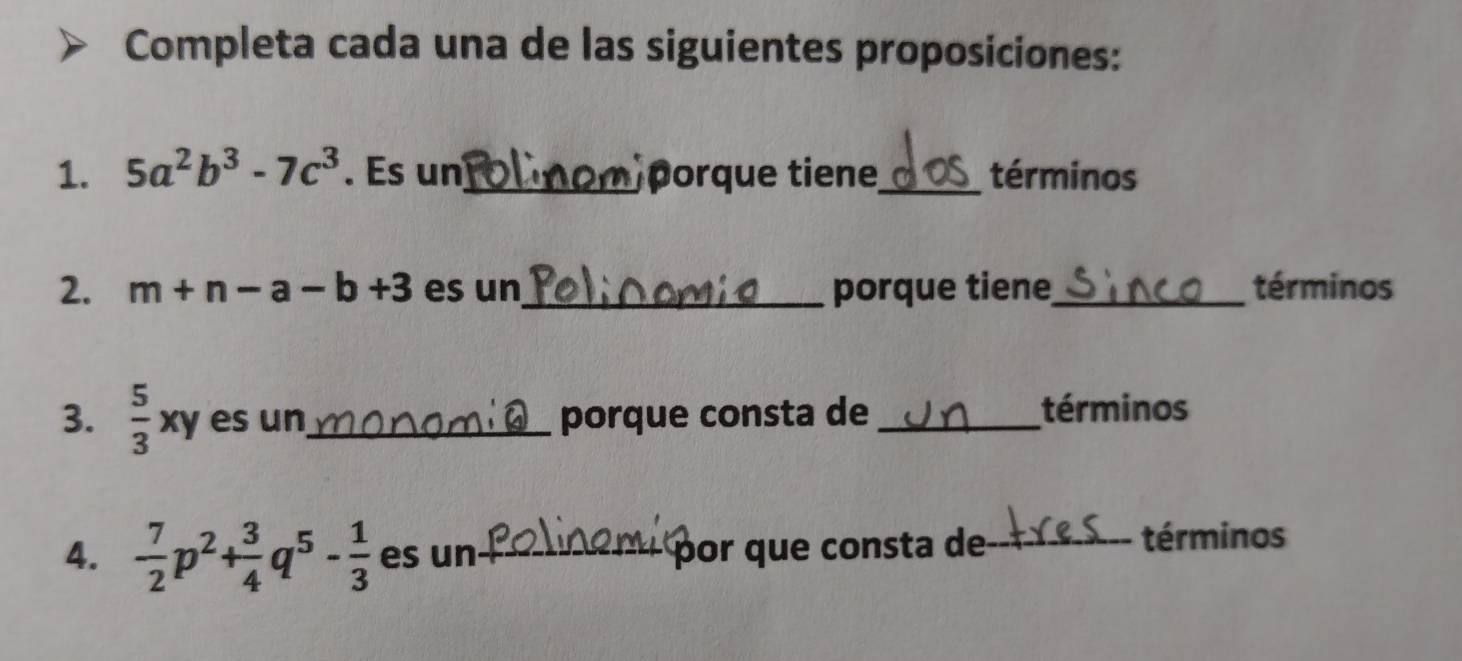 ➤ Completa cada una de las siguientes proposiciones:
1. 5a²b³ - 7c³. Es un Polinomi porque tiene dos términos
2. m + n – a – b +3 es un Polinomio porque tiene Sinco términos
3. 5/3 xy es un monomio porque consta de un términos
4. 7/2 p² + 3/4 q⁵ - 1/3 es un polinomio por que consta de tres términos